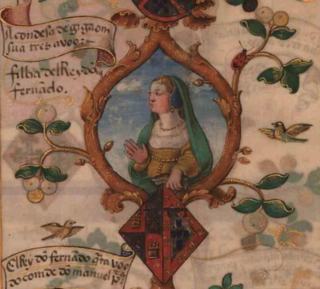 A condesa de gigaom
sua tres avoo.
filha del Rey dõ
fernado.
El Rey dõ fernado
do conde dõ manuel